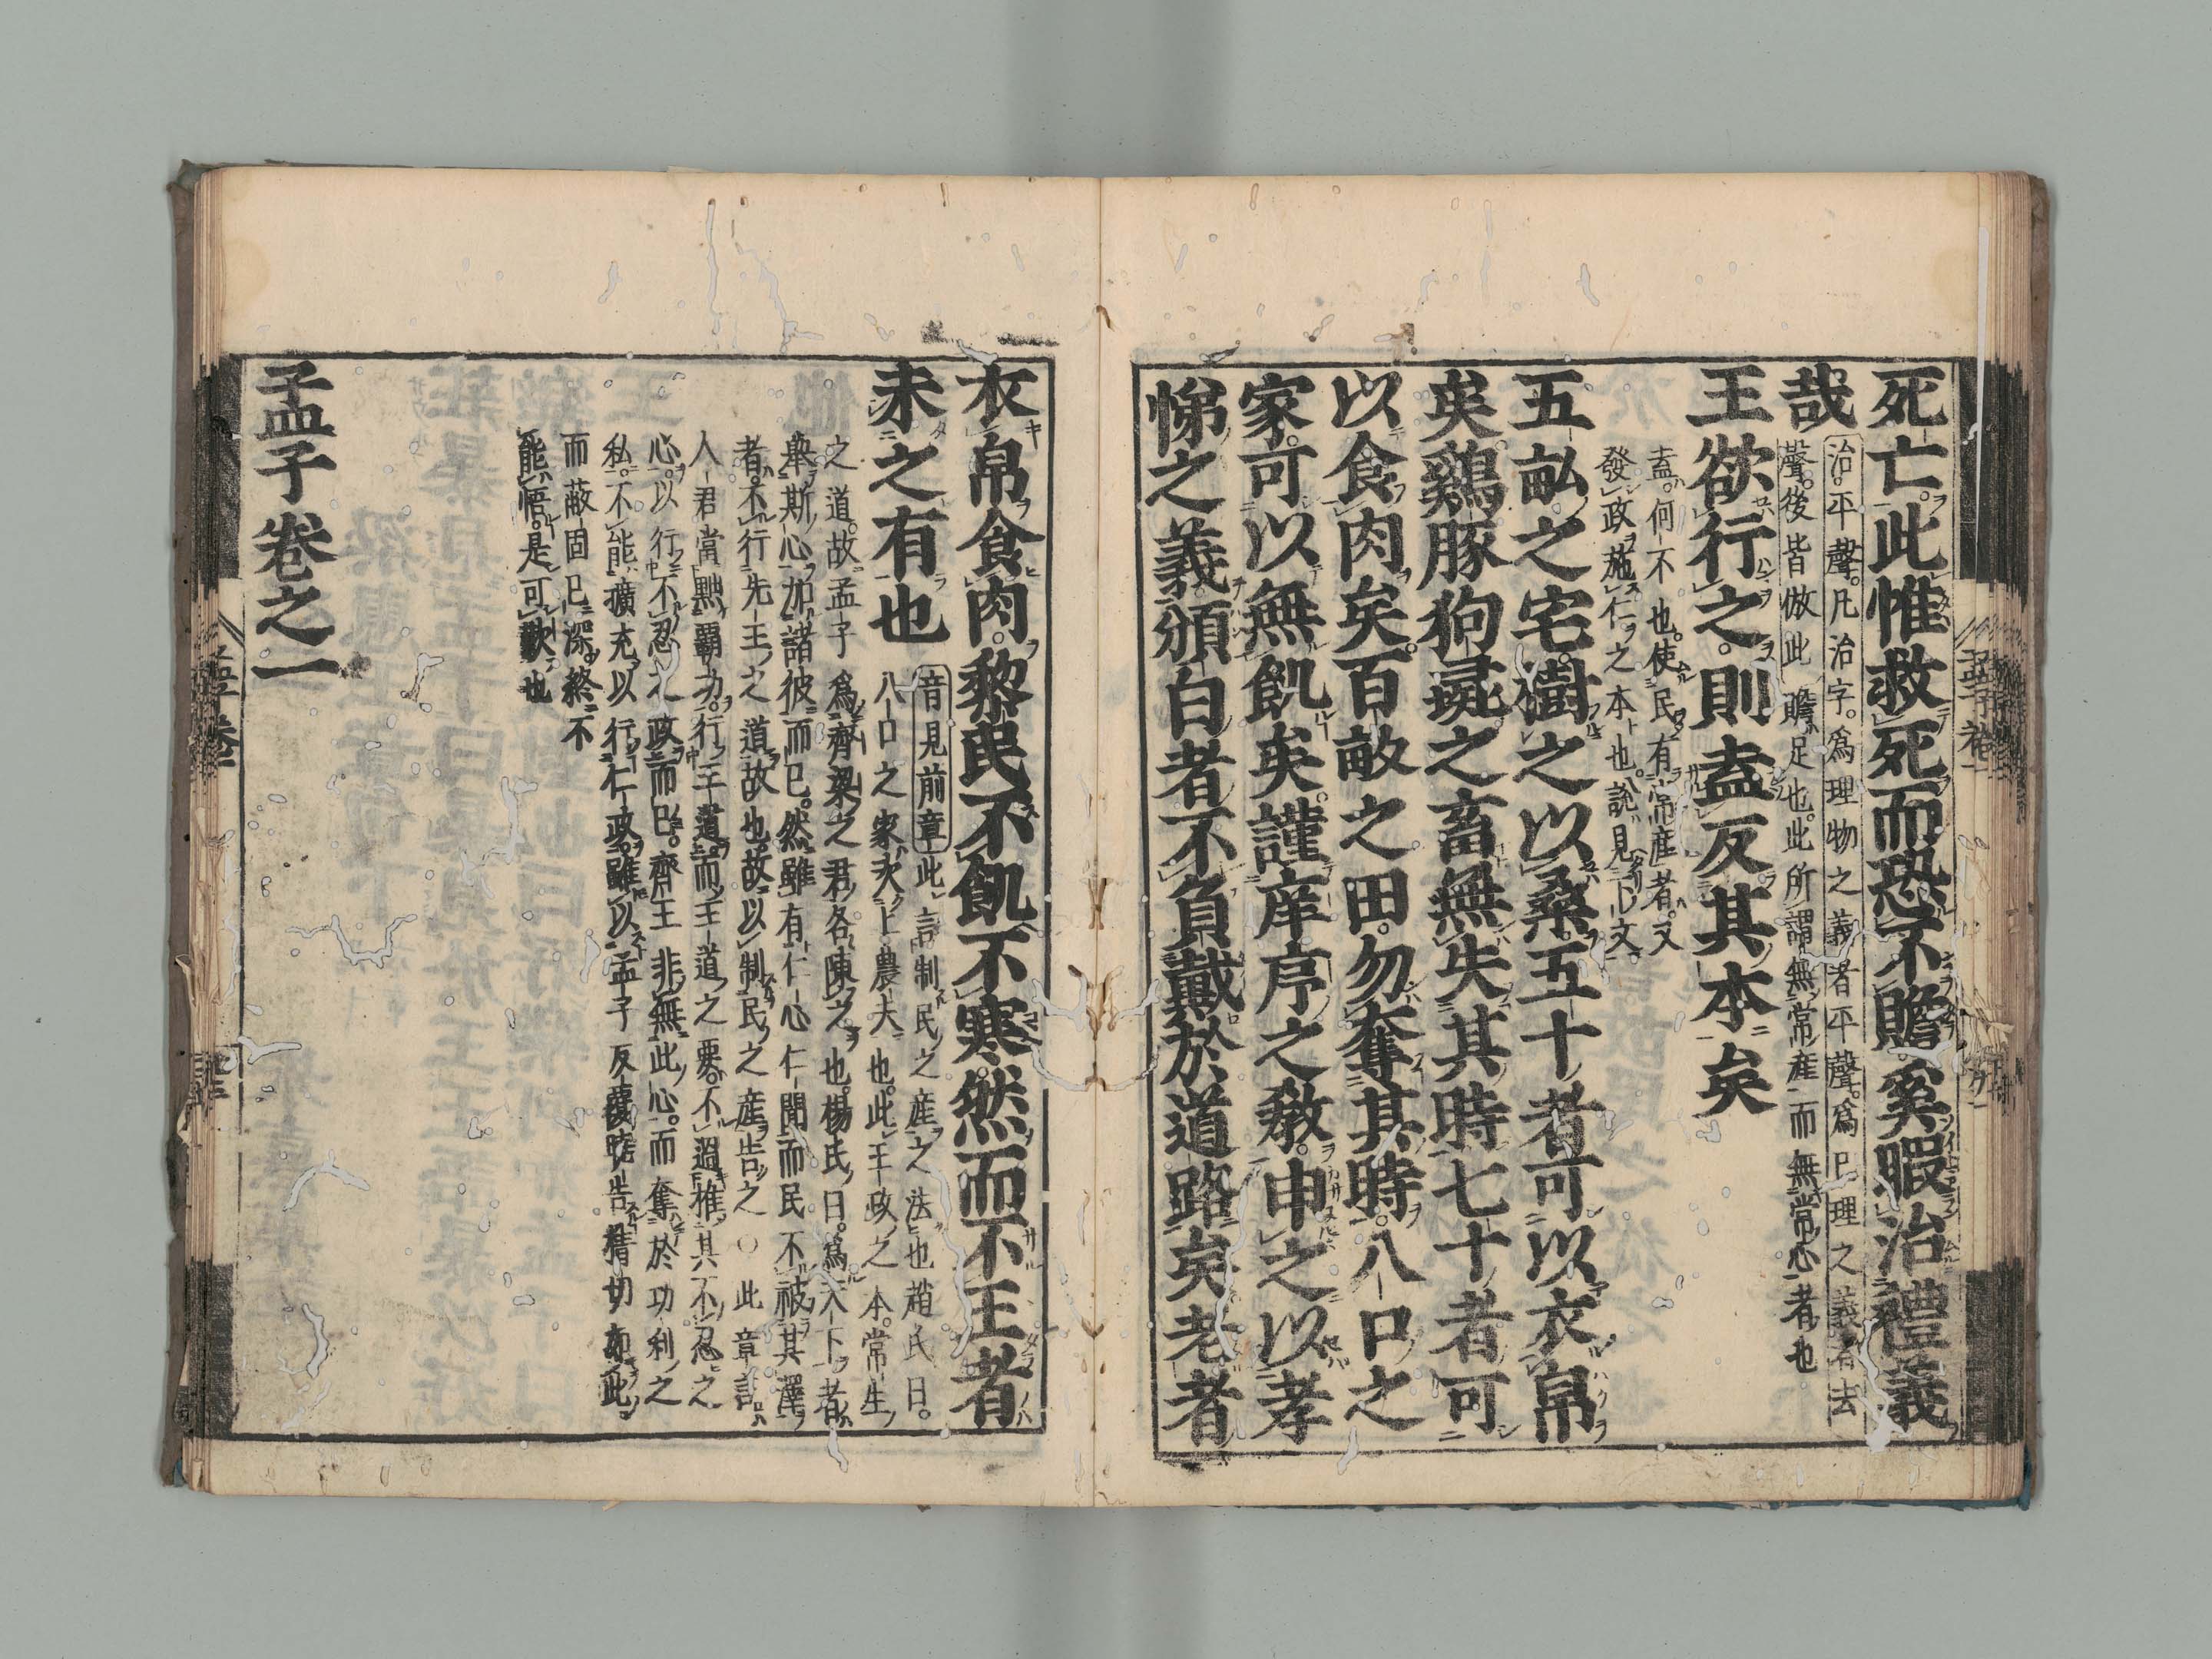 死亡此惟救死而恐不贍奚暇治禮義
哉
治平聲凡治字爲理物之義者平聲爲已理之義者去
聲後皆倣此 贍足也此所謂無常産而無常心者也
王欲行之則盍反其本矣
盍何不也使民有常産者又
發政施仁之本也説見下文
五畝之宅樹之以桑五十者可以衣帛
矣鷄豚狗彘之畜無失其時七十者可
以食肉矣百畝之田勿奪其時八口之
家可以無飢矣謹庠序之教申之以孝
悌之義頒白者不負戴於道路矣老者
衣帛食肉黎民不飢不寒然而不王者
未之有也
音見前章 此言制民之産之法也趙氏曰
八口之家次上農夫也此王政之本常生
之道故孟子爲齊梁之君各陳之也楊氏曰爲天下者
舉斯心加諸彼而已然雖有仁心仁聞而民不被其澤
者不行先王之道故也故以制民之産告之○此章言
人君當黜霸功行王道而王道之要不過推其不忍之
心以行不忍之政而已齊王非無此心而奪於功利之
私不能擴充以行仁政雖以孟子反覆曉告精切如此
而蔽固已深終不
能悟是可歎也
孟子卷之一